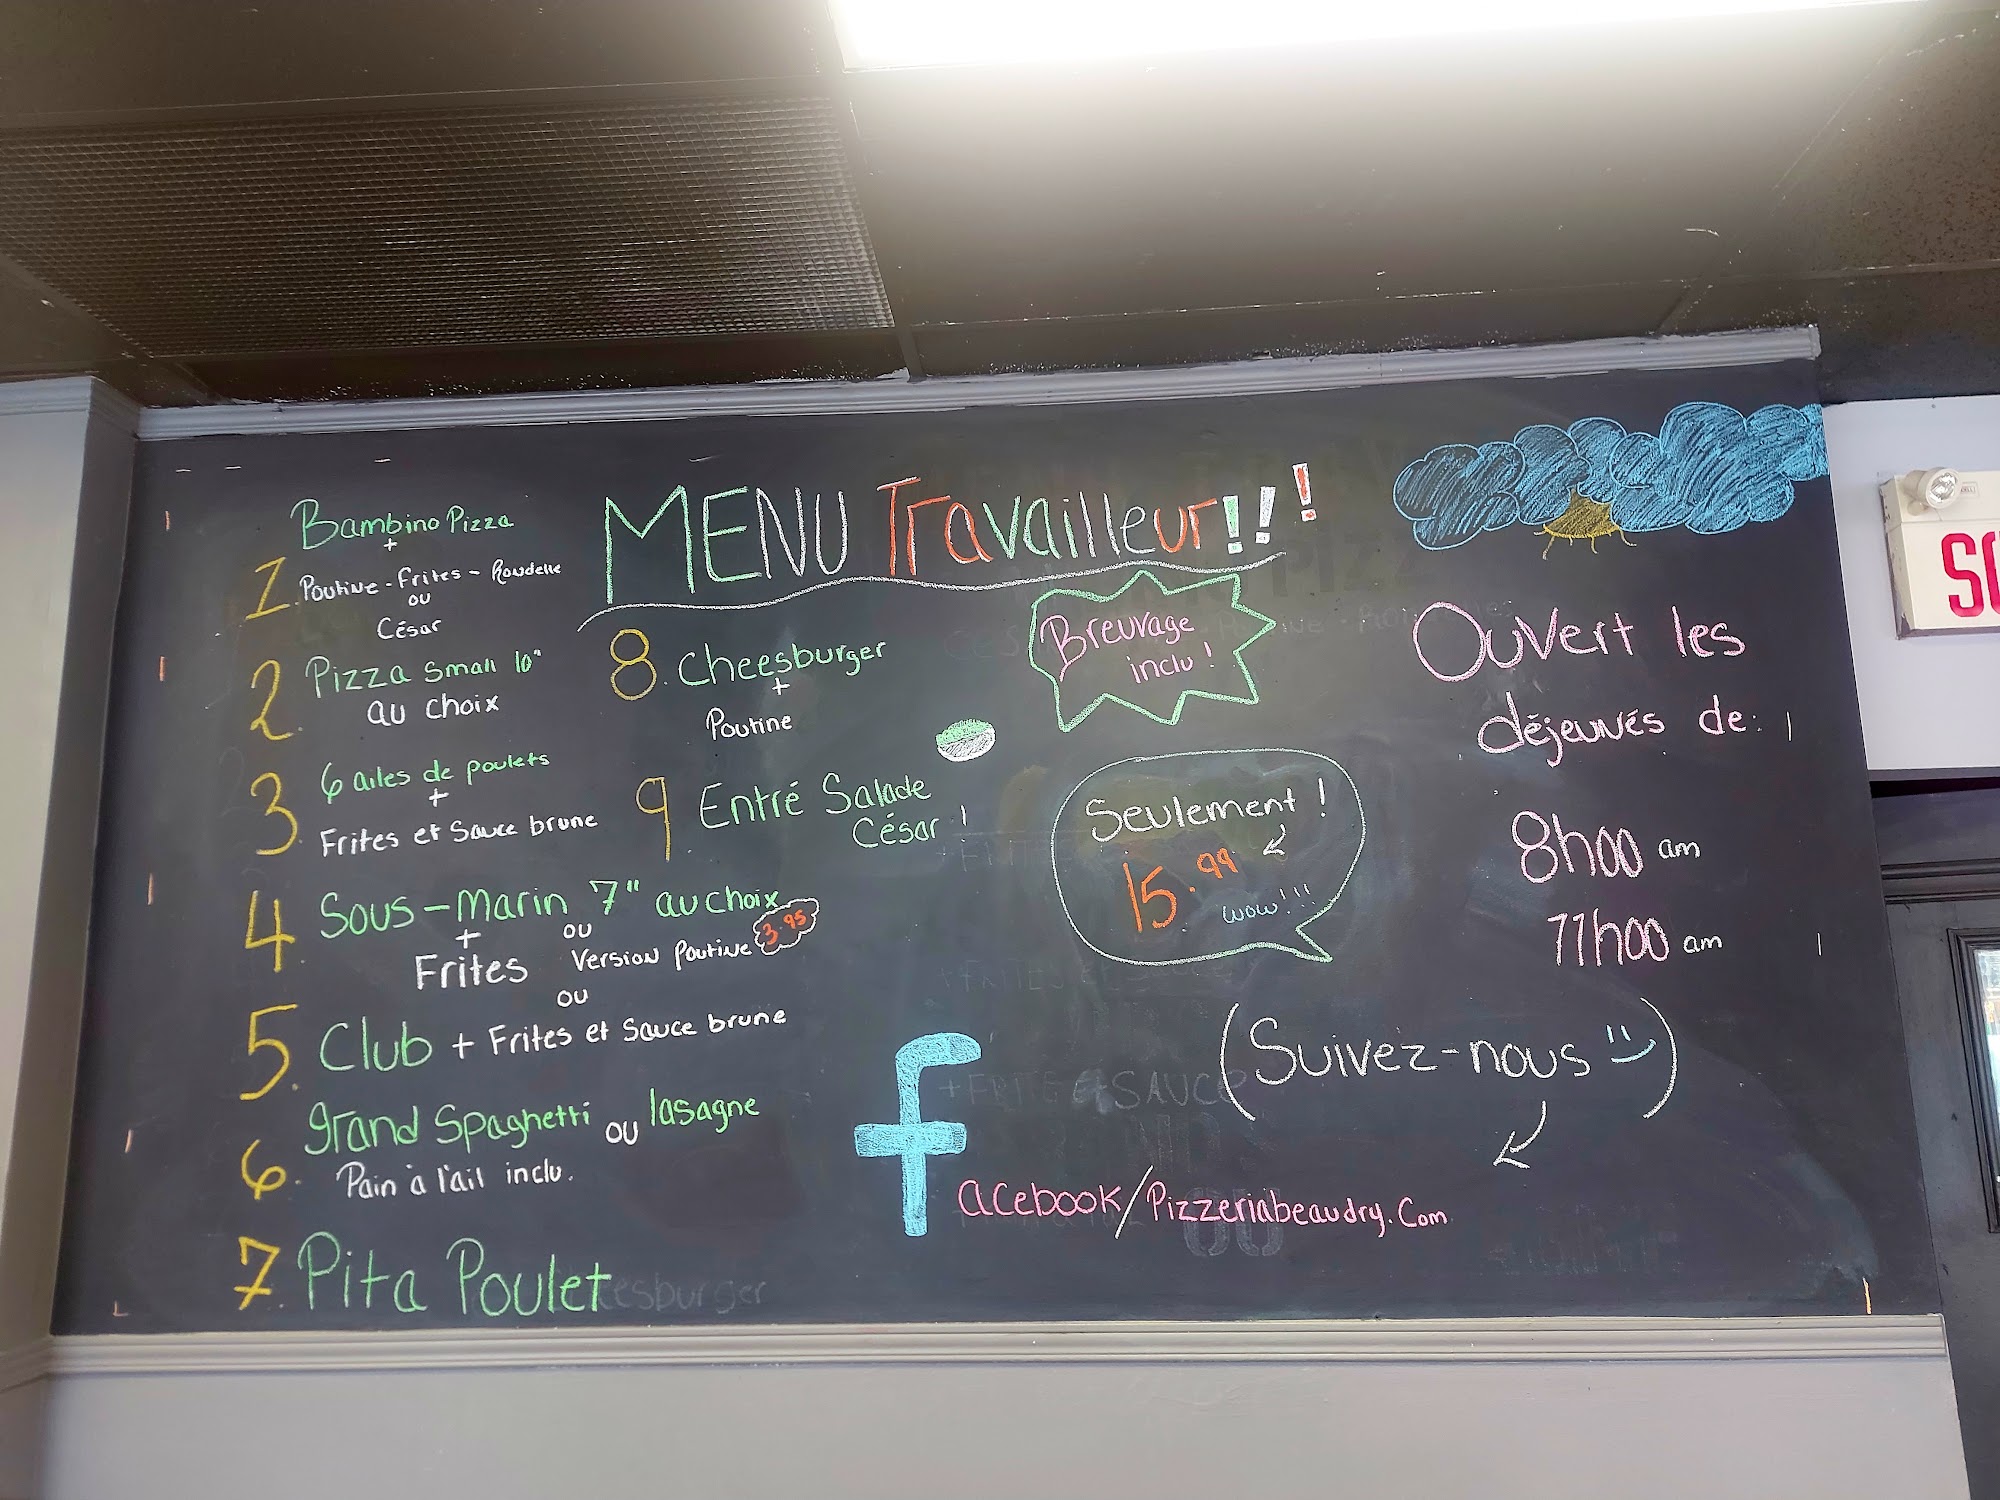 MENU Travailleur!!!
1. Bambino Pizza
+
Poutine - Frites - Rondelle
ou
César
2. Pizza small 10"
au choix
3. 6 ailes de poulets
+
Frites et Sauce brune
4. Sous-Marin 7" au choix
+
Frites
ou
Version Poutine 3.95
ou
5. Club + Frites et Sauce brune
6. grand Spaghetti ou lasagne
Pain à l'ail inclu.
7. Pita Poulet
8. Cheesburger
+
Poutine
9 Entré Salade
César
Breuvage
inclu !
Seulement !
15.99
wow!!!
Ouvert les
déjeunés de:
8h00 am
11h00 am
(Suivez-nous)
facebook/Pizzeriabeaudry.Com